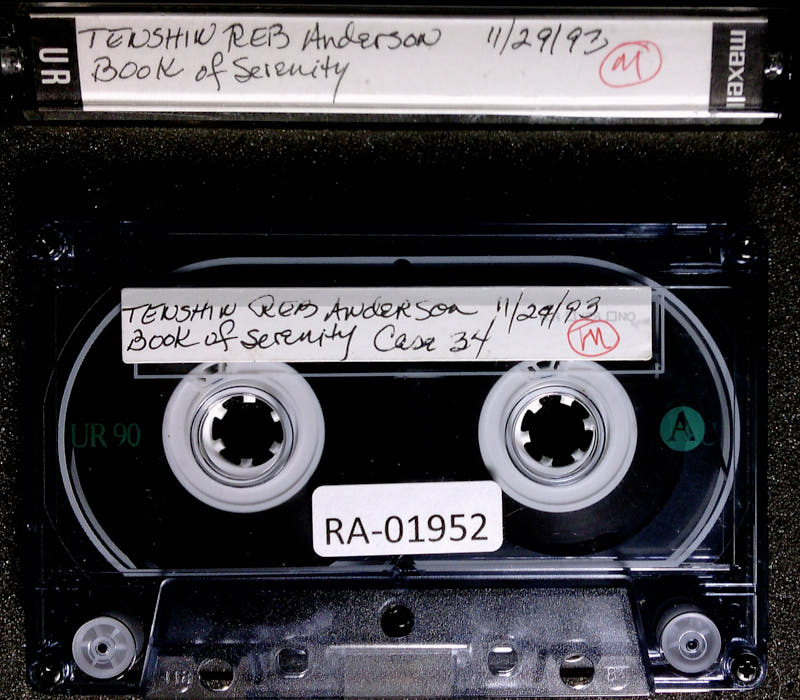 UR
TENSHIN REB Anderson 11/29/93
BOOK of Serenity
M
maxell
TENSHIN REB ANDERSON 11/29/93
BOOK of Serenity Case 34
M
UR 90
A
RA-01952